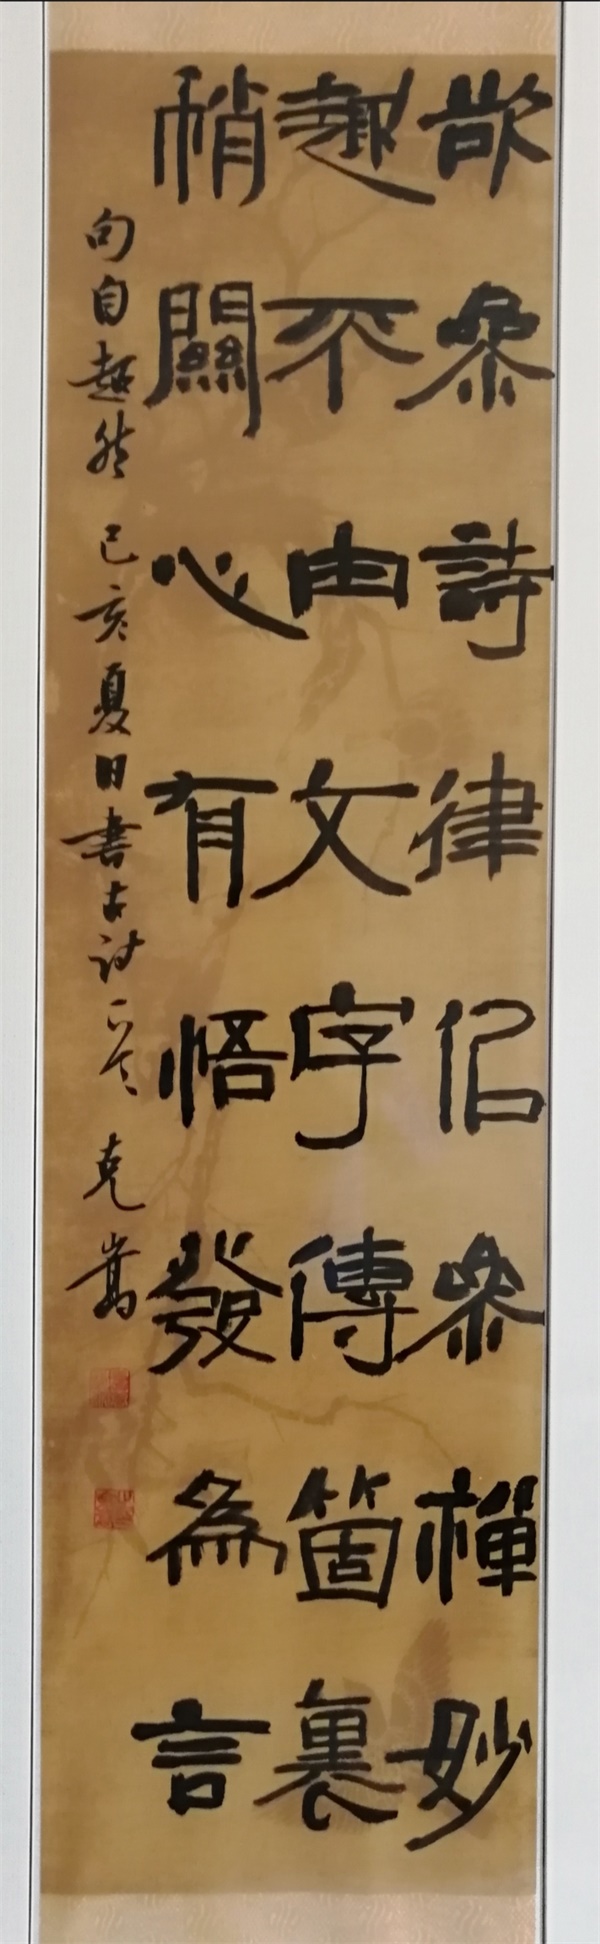 欲參詩律佀參禪妙
趣不由文字傳箇裏
稍關心有悟發為言
句自超然 己亥夏日書古詩一首 克嵩